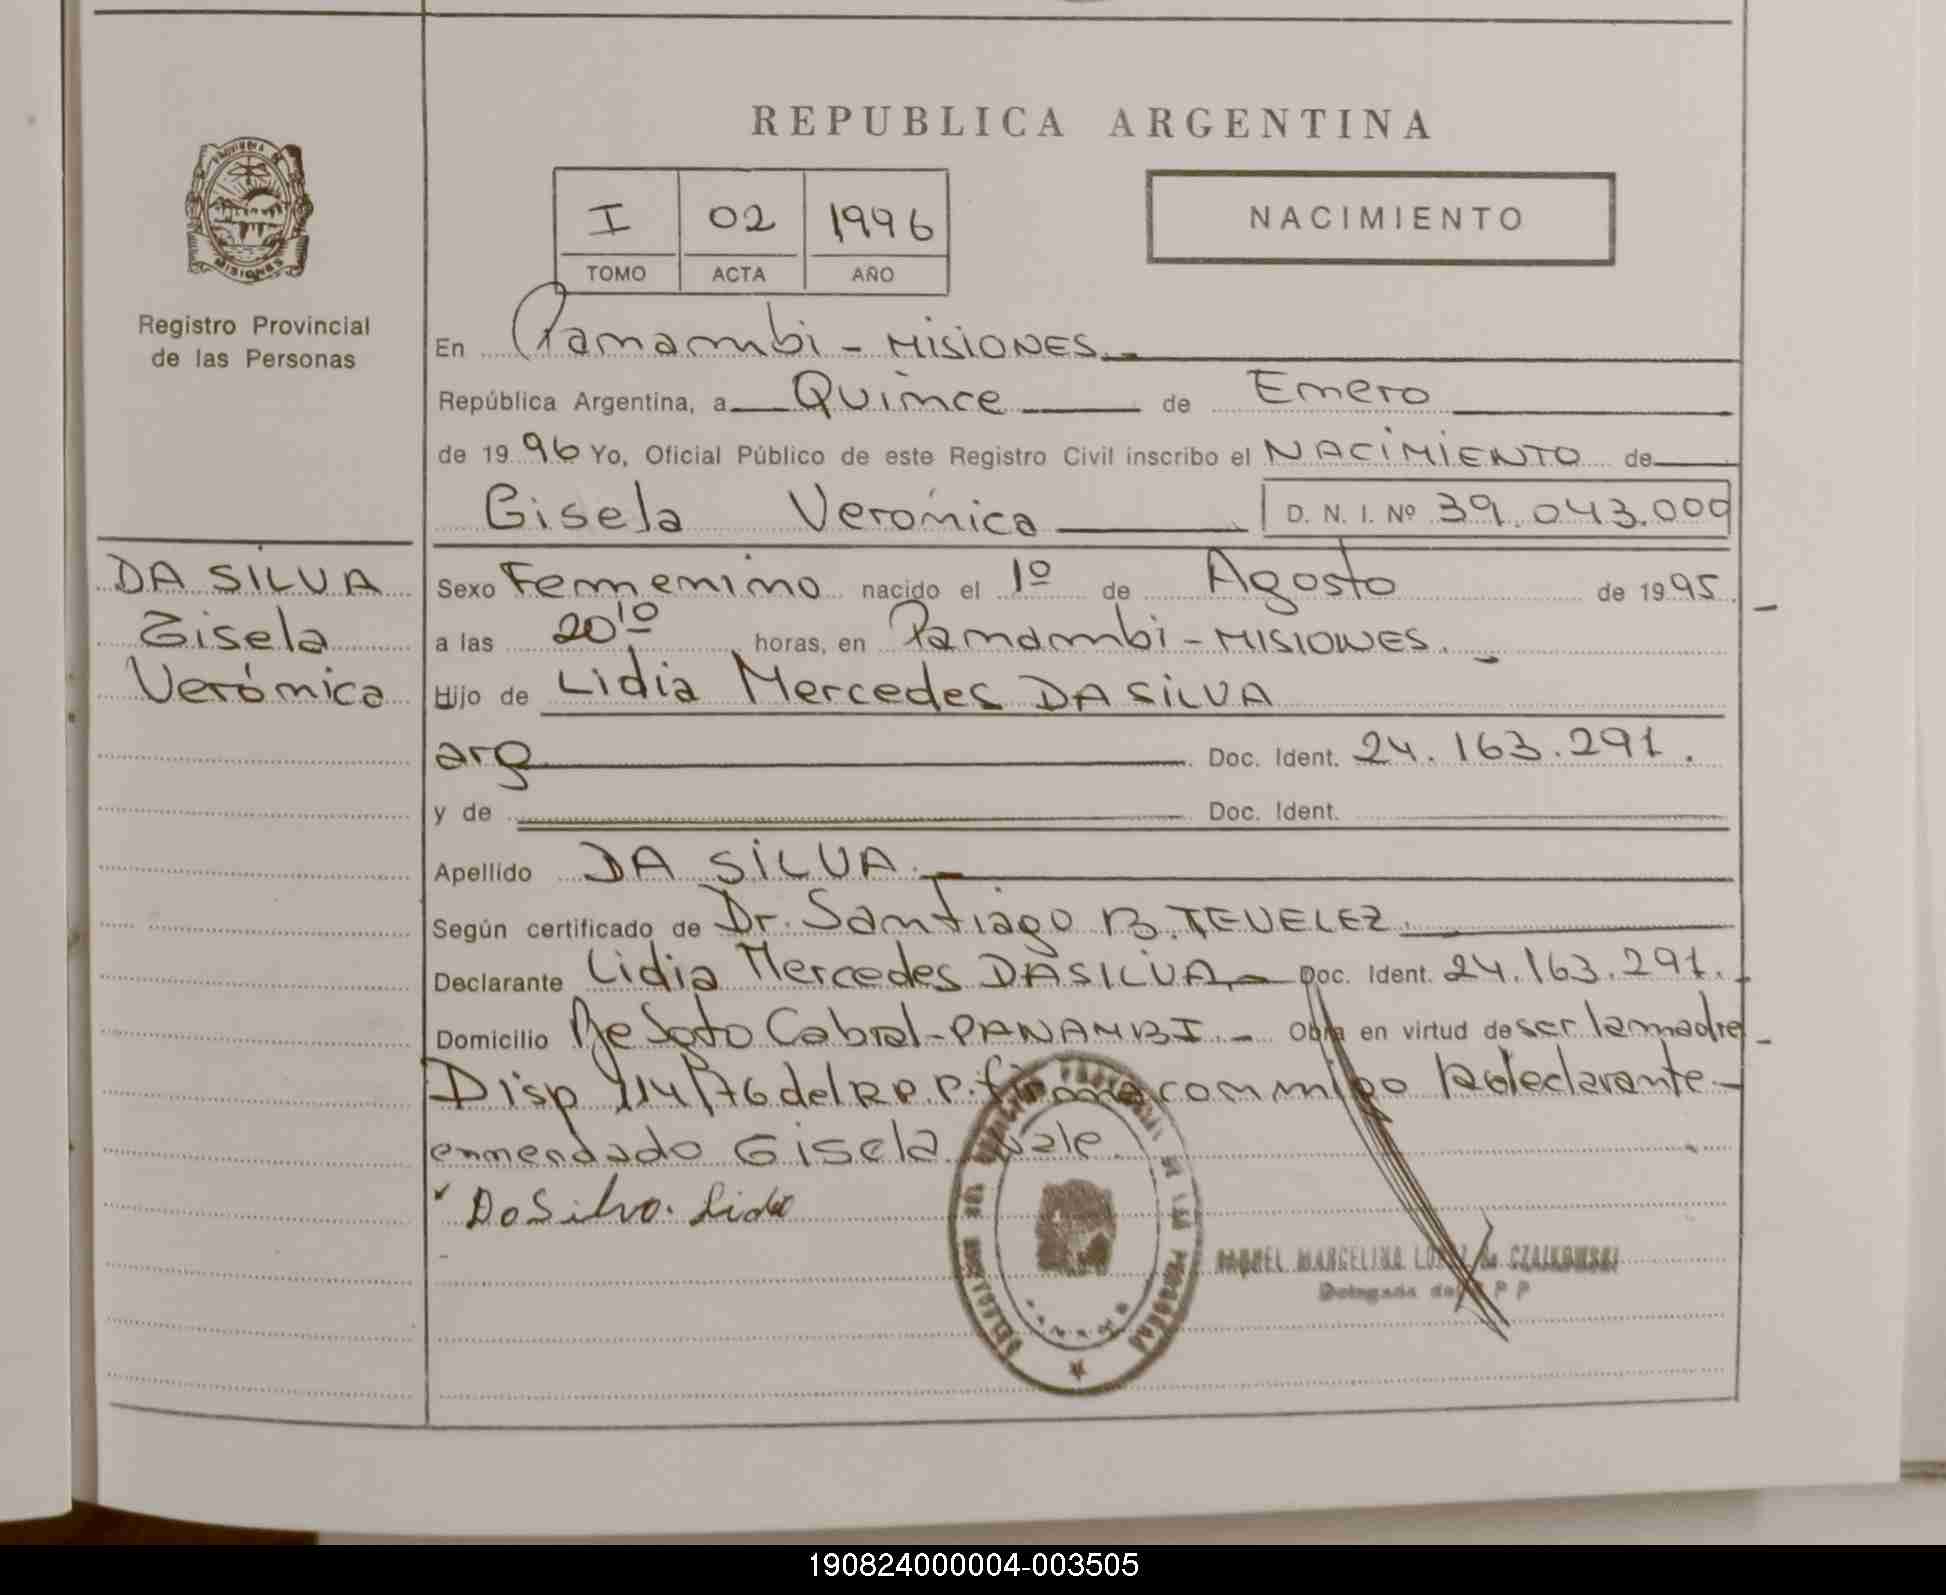 REPUBLICA ARGENTINA
I 02 1996
TOMO ACTA AÑO
NACIMIENTO
MISIONES
Registro Provincial
de las Personas
En Panambi - MISIONES
República Argentina, a Quince de Enero
de 1996 Yo, Oficial Público de este Registro Civil inscribo el NACIMIENTO de
Gisela Verónica D. N. I. Nº 39.043.000
DA SILVA
Gisela
Verónica
Sexo Femenino nacido el 1º de Agosto de 1995
a las 20 10 horas, en Panambi - MISIONES.
Hijo de Lidia Mercedes DA SILVA
arg Doc. Ident. 24.163.291.
y de Doc. Ident.
Apellido DA SILVA.
Según certificado de Dr. Santiago B. TEVELEZ.
Declarante Lidia Mercedes DA SILVA - Doc. Ident. 24.163.291.
Domicilio De Soto Cabral - PANAMBI - Obra en virtud de ser la madre
Disp 114/76 del R.P.P. firma conmigo la declarante -
enmendado Gisela vale.
DaSilva. Lidia
RAQUEL MARCELINA LOPEZ de CZAIKOWSKI
Delegada del R P P
190824000004-003505